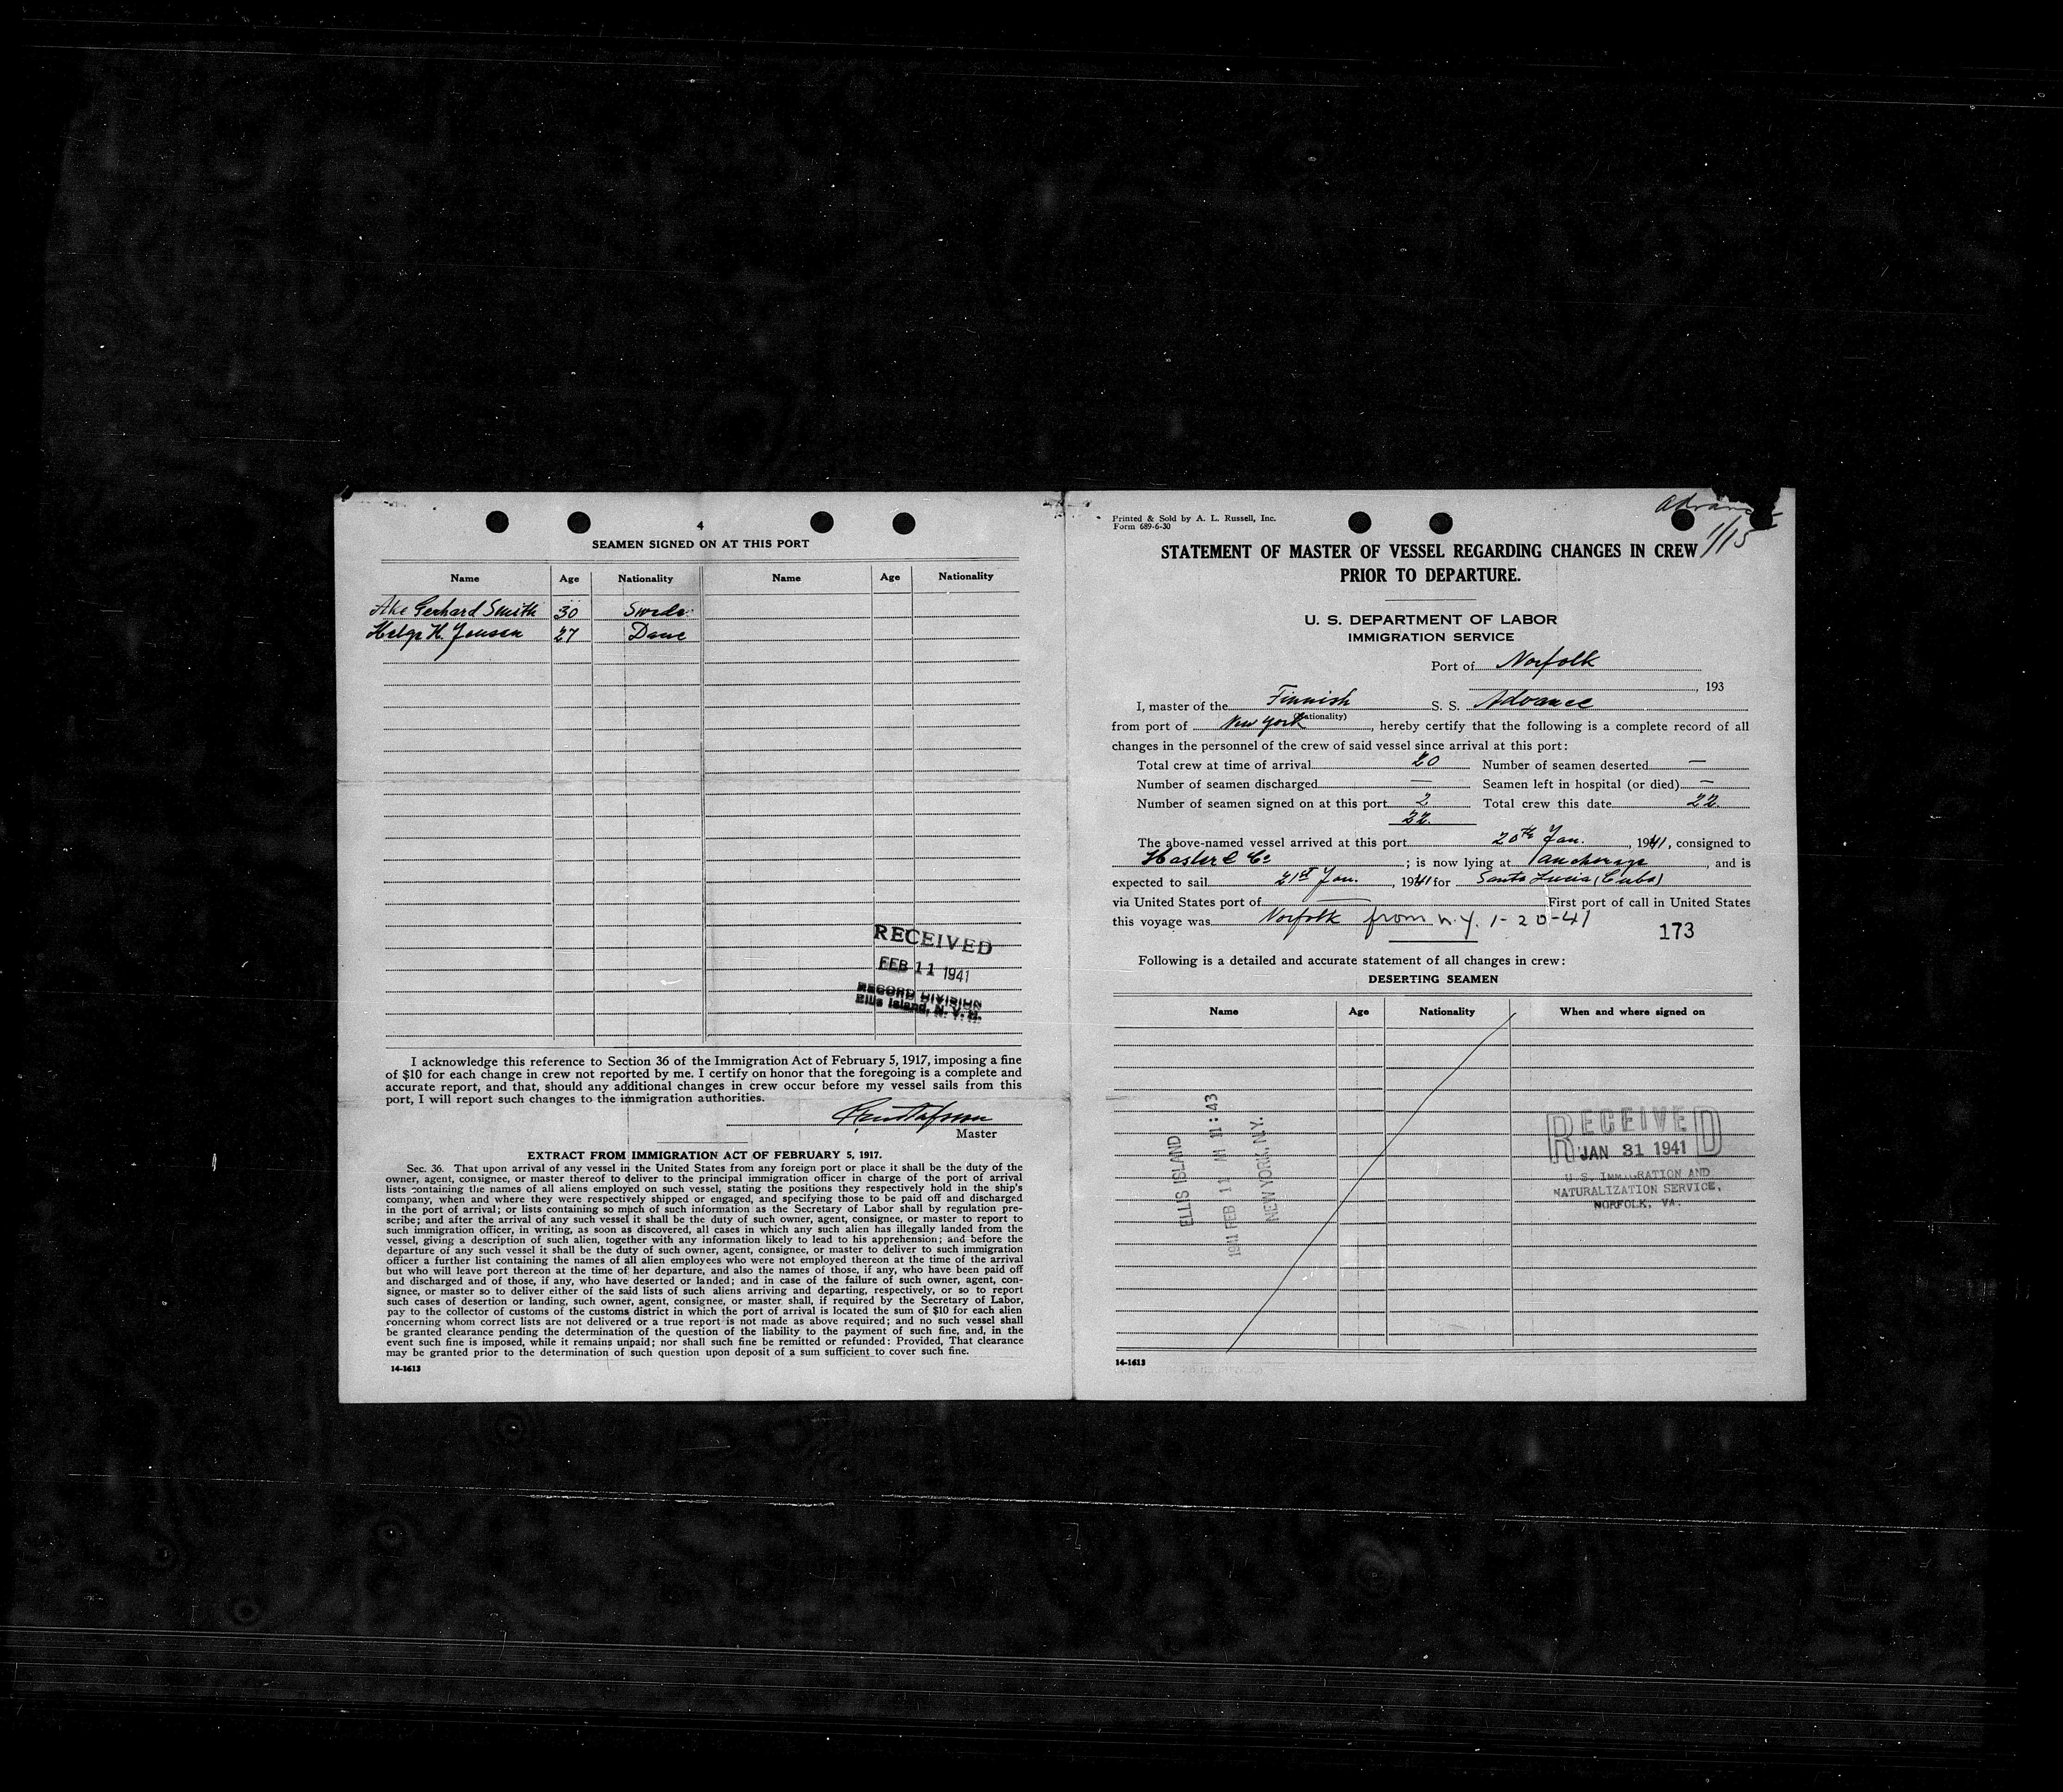 4
SEAMEN SIGNED ON AT THIS PORT
Name Age Nationality Name Age Nationality
Ake Gerhard Smith 30 Swede
Helge H. Jensen 27 Dane
RECEIVED
FEB 11 1941
RECORD DIVISION
Ellis Island, N. Y. H.
I acknowledge this reference to Section 36 of the Immigration Act of February 5, 1917, imposing a fine
of $10 for each change in crew not reported by me. I certify on honor that the foregoing is a complete and
accurate report, and that, should any additional changes in crew occur before my vessel sails from this
port, I will report such changes to the immigration authorities.
Gustafsson
Master
EXTRACT FROM IMMIGRATION ACT OF FEBRUARY 5, 1917.
Sec. 36. That upon arrival of any vessel in the United States from any foreign port or place it shall be the duty of the
owner, agent, consignee, or master thereof to deliver to the principal immigration officer in charge of the port of arrival
lists containing the names of all aliens employed on such vessel, stating the positions they respectively hold in the ship's
company, when and where they were respectively shipped or engaged, and specifying those to be paid off and discharged
in the port of arrival; or lists containing so much of such information as the Secretary of Labor shall by regulation pre-
scribe; and after the arrival of any such vessel it shall be the duty of such owner, agent, consignee, or master to report to
such immigration officer, in writing, as soon as discovered, all cases in which any such alien has illegally landed from the
vessel, giving a description of such alien, together with any information likely to lead to his apprehension; and before the
departure of any such vessel it shall be the duty of such owner, agent, consignee, or master to deliver to such immigration
officer a further list containing the names of all alien employees who were not employed thereon at the time of the arrival
but who will leave port thereon at the time of her departure, and also the names of those, if any, who have been paid off
and discharged and of those, if any, who have deserted or landed; and in case of the failure of such owner, agent, con-
signee, or master so to deliver either of the said lists of such aliens arriving and departing, respectively, or so to report
such cases of desertion or landing, such owner, agent, consignee, or master shall, if required by the Secretary of Labor,
pay to the collector of customs of the customs district in which the port of arrival is located the sum of $10 for each alien
concerning whom correct lists are not delivered or a true report is not made as above required; and no such vessel shall
be granted clearance pending the determination of the question of the liability to the payment of such fine, and, in the
event such fine is imposed, while it remains unpaid; nor shall such fine be remitted or refunded: Provided, That clearance
may be granted prior to the determination of such question upon deposit of a sum sufficient to cover such fine.
14-1613
Printed & Sold by A. L. Russell, Inc.
Form 689-6-30
Advance
1/15
STATEMENT OF MASTER OF VESSEL REGARDING CHANGES IN CREW
PRIOR TO DEPARTURE.
U. S. DEPARTMENT OF LABOR
IMMIGRATION SERVICE
Port of Norfolk
, 193
I, master of the Finnish S. S. Advance
(Nationality)
from port of New York, hereby certify that the following is a complete record of all
changes in the personnel of the crew of said vessel since arrival at this port:
Total crew at time of arrival 20 Number of seamen deserted —
Number of seamen discharged — Seamen left in hospital (or died) —
Number of seamen signed on at this port 2 Total crew this date 22
22
The above-named vessel arrived at this port 20th Jan., 1941, consigned to
Hasler & Co ; is now lying at anchorage, and is
expected to sail 21st Jan., 1941 for Santa Lucia (Cuba)
via United States port of — First port of call in United States
this voyage was Norfolk from N.Y. 1-20-41
173
Following is a detailed and accurate statement of all changes in crew:
DESERTING SEAMEN
Name Age Nationality When and where signed on
ELLIS ISLAND
1941 FEB 11 AM 11:43
NEW YORK, N.Y.
RECEIVED
JAN 31 1941
U.S. IMMIGRATION AND
NATURALIZATION SERVICE,
NORFOLK, VA.
14-1613